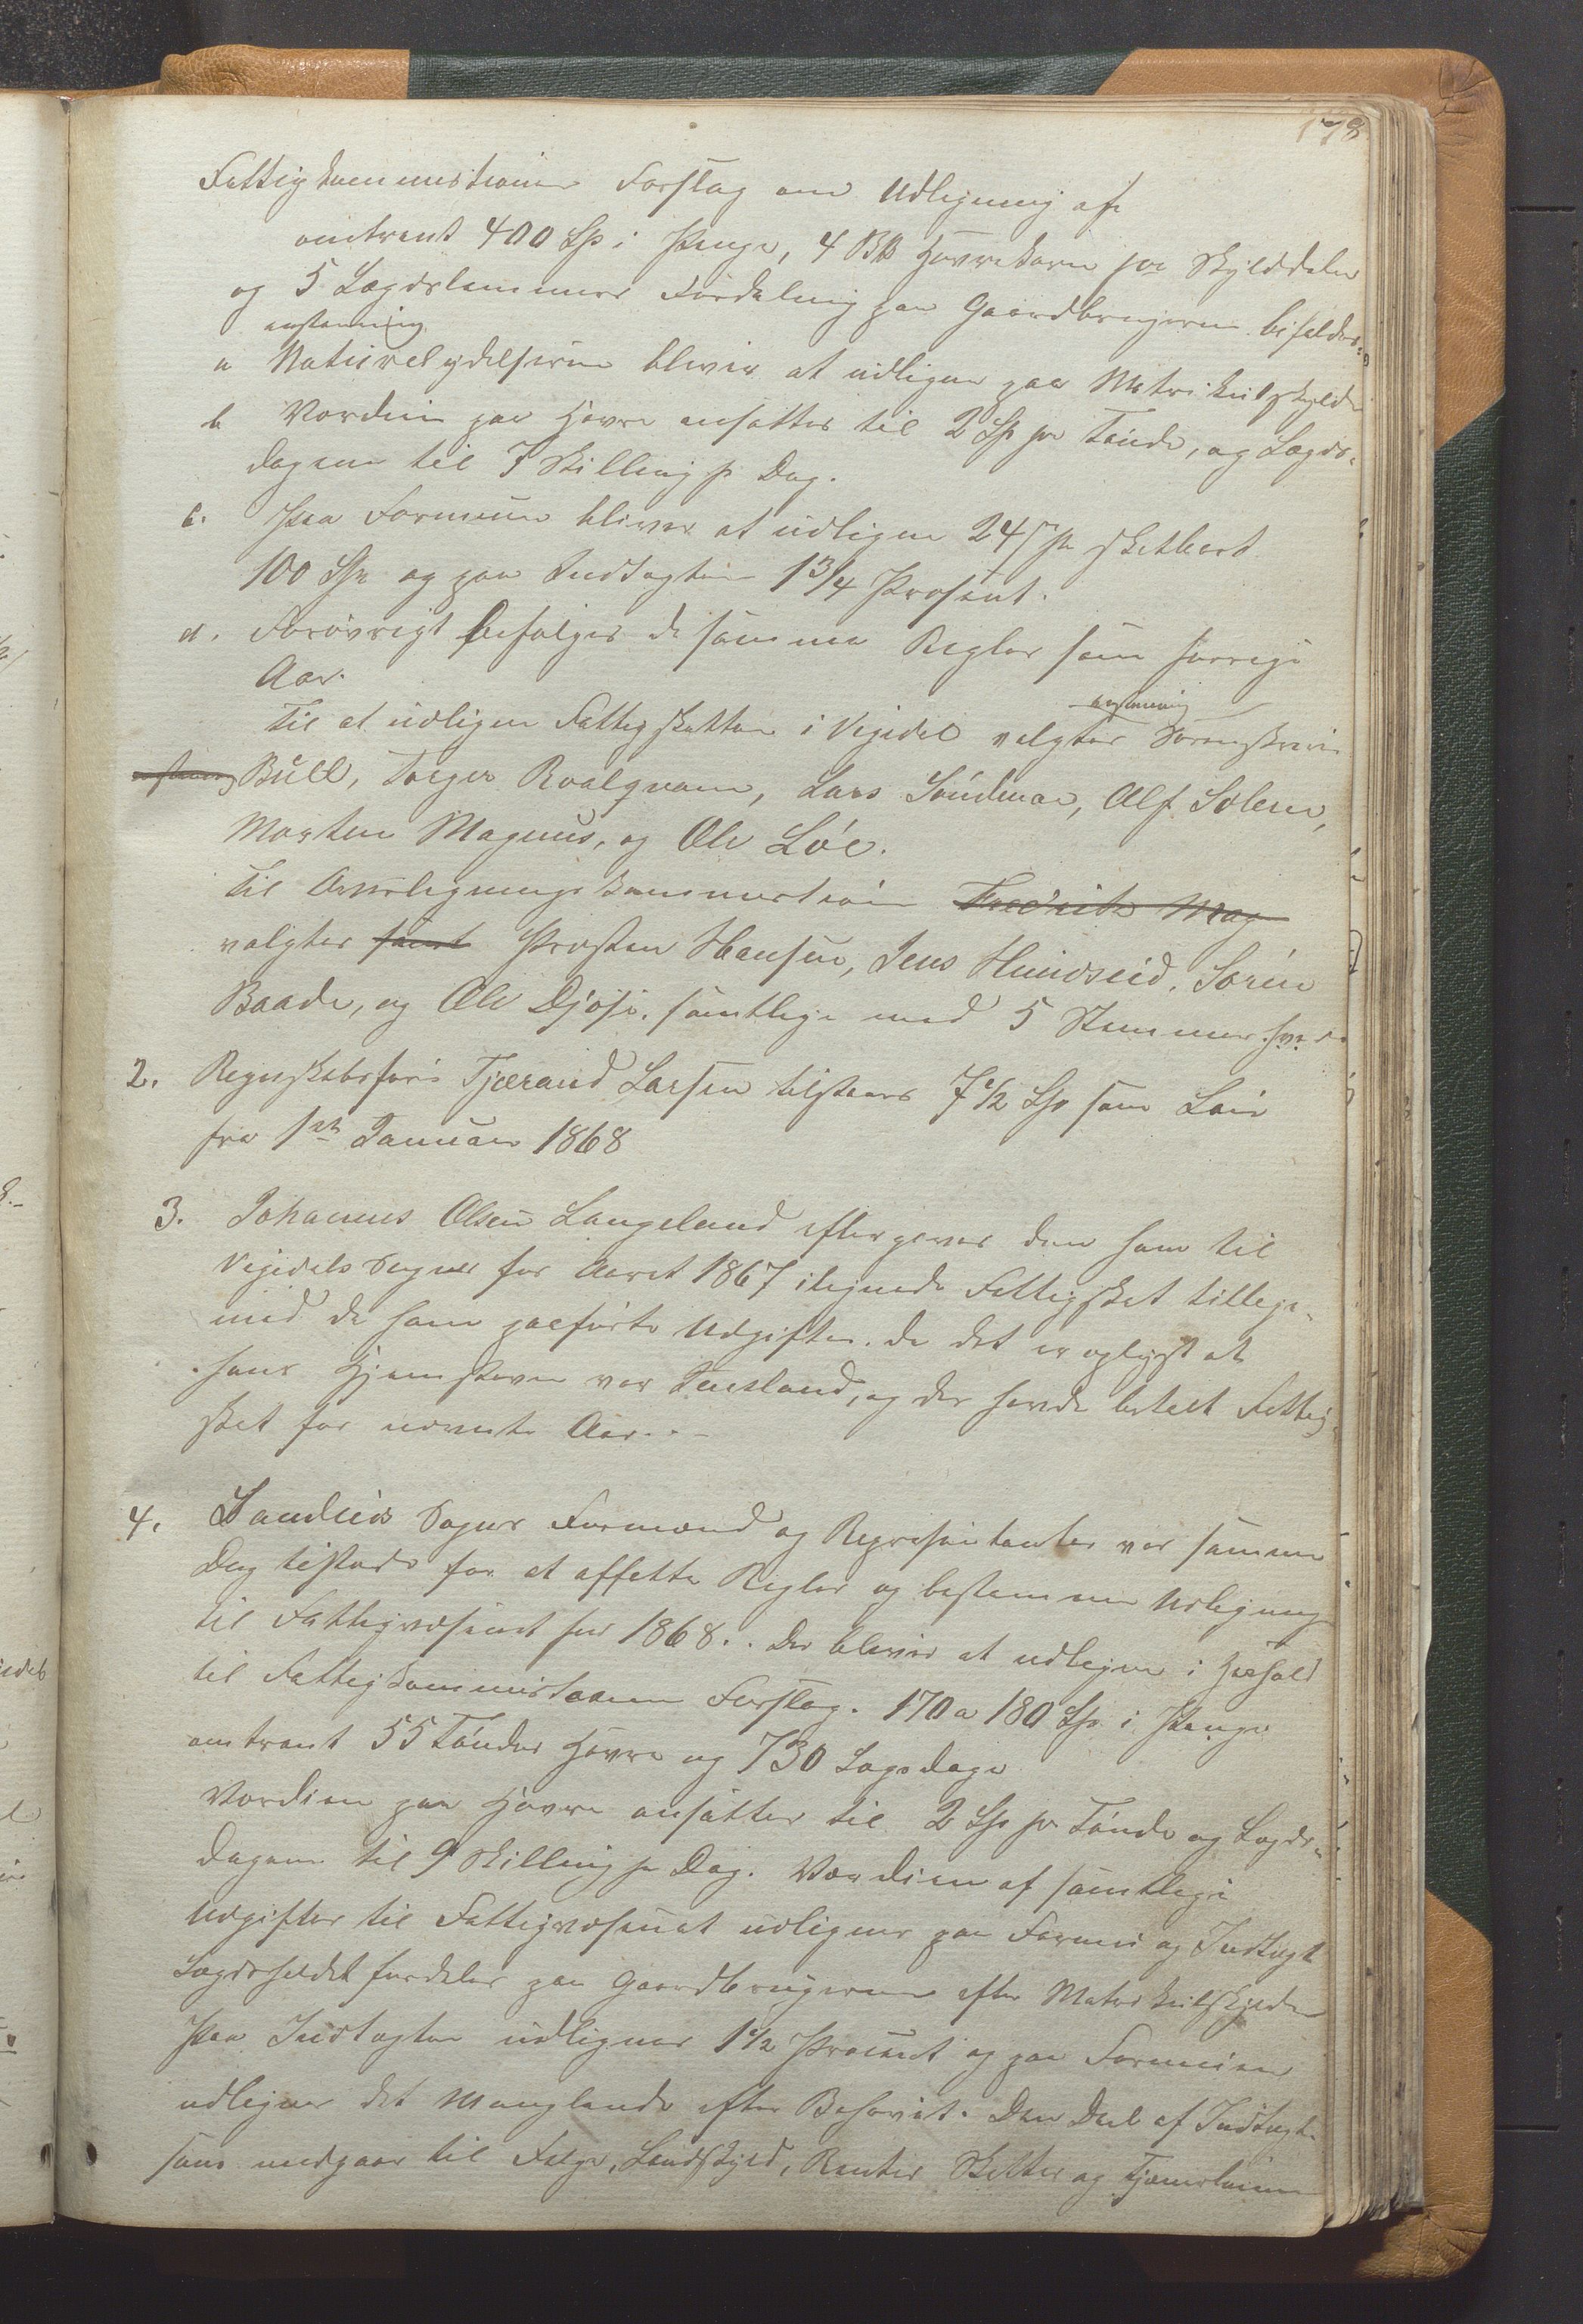 178
Fattigkommissionens Forslag om Udligning af
omtrent 400 Sp i Penge, 4 Bb Havrekorn pr Skylddaler
og 5 Lægdslemmers Fordeling paa Gaardbrugerne bifaldes:
enstemmig
a Naturalydelserne bliver at udligne paa Matrikulskylden
b Værdien paa Havre ansættes til 2 Sp pr Tønde, og Lægds-
dagene til 7 Skilling pr Dag.
c. Paa Formuen bliver at udligne 24 s pr skatbart
100 Sp og paa Indtægten 1 3/4 Prosent.
d. Forøvrigt befølges de samme Regler som forrige
Aar.
enstemmig
Til at udligne Fattigskatten i Vigedal valgtes Sorenskriver
Bull, Torger Roalqvam, Lars Søndenaa, Alf Solem,
Morten Magnus, og Ole Løe.
Til Overligningskommission Fredrik Mag
valgtes samt Presten Hansen, Jens Hundseid, Søren
Baade, og Ole Djøse, samtlige med 5 Stemmer hver
2. Regnskabsfører Tjærand Larsen tilstaaes 7 1/2 Sp som Løn
fra 1ste Januar 1868
3. Johannes Olsen Langeland eftergives den ham til
Vigedals Sogn for Aaret 1867 ilignede Fattigskat tillige-
med de ham paaførte Udgifter. da det er oplyst at
hans Hjemstavn var , og der havde betalt Fattig-
skat for nævnte Aar. -
4. Sandeids Sogns Formænd og Repræsentanter var samme
Dag tilstede for at affatte Regler og bestemme Udligning
til Fattigvæsenet for 1868. . Der bliver at udligne i Henhold
til Fattigkommissionens Forslag. 170 a 180 Sp i Penge
omtrent 55 Tønder Havre og 730 Lægdsdage
Værdien paa Havre ansættes til 2 Sp pr Tønde og Lægds-
dagene til 9 Skilling pr Dag. Værdien af samtlige
Udgifter til Fattigvæsenet udlignes paa Formue og Indtægt
Lægdsholdet fordeles paa Gaardbrugerne efter Matrikulskylden
Paa Indtægten udlignes 1 1/2 Procent og paa Formuen
udlignes det Manglende efter Behovet. Den Deel af Indtægten
som medgaar til Følge, Landskyld, Renter Skatter og Tjenerlønn